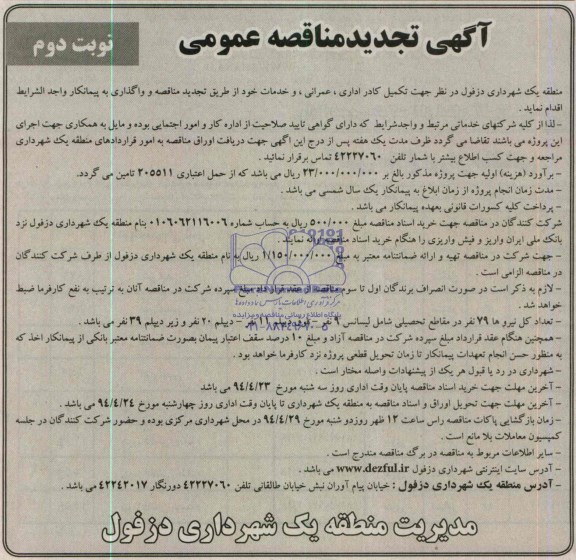 آگهی تجدیدمناقصه عمومی
نوبت دوم
منطقه یک شهرداری دزفول در نظر جهت تکمیل کادر اداری ، عمرانی ، و خدمات خود از طریق تجدید مناقصه و واگذاری به پیمانکار واجد الشرایط
اقدام نماید .
-لذا از کلیه شرکتهای خدماتی مرتبط و واجدشرایط که دارای گواهی تایید صلاحیت از اداره کار و امور اجتماعی بوده و مایل به همکاری جهت اجرای
این پروژه می باشند تقاضا می گردد ظرف مدت یک هفته پس از درج این آگهی جهت دریافت اوراق مناقصه به امور قراردادهای منطقه یک شهرداری
مراجعه و جهت کسب اطلاع بیشتر با شمار تلفن ۴۲۲۲۷۰۶۰ تماس برقرار نمائید .
- برآورد (هزینه) اولیه جهت پروژه مذکور بالغ بر ۲۳/۰۰۰/۰۰۰/۰۰۰ ریال می باشد که از حمل اعتباری ۲۰۵۵۱۱ تامین می گردد.
- مدت زمان انجام پروژه از زمان ابلاغ به پیمانکار یک سال شمسی می باشد .
- پرداخت کلیه کسورات قانونی بعهده پیمانکار می باشد .
شرکت کنندگان در مناقصه جهت خرید اسناد مناقصه مبلغ ۵۰۰/۰۰۰ ریال به حساب شماره ۰۱۰۶۰۶۲۱۱۶۰۰۶ بنام منطقه یک شهرداری دزفول نزد
بانک ملی ایران واریز و فیش واریزی را هنگام خرید اسناد مناقصه ارائه نمایند .
- جهت شرکت در مناقصه تهیه و ارائه ضمانتنامه معتبر به مبلغ ۱/۱۵۰/۰۰۰/۰۰۰ ریال به نام منطقه یک شهرداری دزفول از طرف شرکت کنندگان
در مناقصه الزامی است .
- لازم به ذکر است در صورت انصراف برندگان اول تا سوم مناقصه از عقد قرارداد مبلغ سپرده شرکت در مناقصه آنان به ترتیب به نفع کارفرما ضبط
خواهد شد .
- تعداد کل نیرو ها ۷۹ نفر در مقاطع تحصیلی شامل لیسانس ۹ نفر - فوق دیپلم ۱۱ نفر - دیپلم ۲۰ نفر و زیر دیپلم ۳۹ نفر می باشد .
- همچنین هنگام عقد قرارداد مبلغ سپرده شرکت در مناقصه آزاد و مبلغ ۱۰ درصد سقف اعتبار پیمان بصورت ضمانتنامه معتبر بانکی از پیمانکار اخذ که
به منظور حسن انجام تعهدات پیمانکار تا زمان تحویل قطعی پروژه نزد کارفرما خواهد بود .
- شهرداری در رد یا قبول هر یک از پیشنهادات واصله مختار است .
- آخرین مهلت جهت خرید اسناد مناقصه پایان وقت اداری روز سه شنبه مورخ ۹۴/۴/۲۳ می باشد
- آخرین مهلت جهت تحویل اوراق و اسناد مناقصه به منطقه یک شهرداری تا پایان وقت اداری روز چهارشنبه مورخ ۹۴/۴/۲۴ می باشد .
- زمان بازگشایی پاکات مناقصه راس ساعت ۱۲ ظهر روزدو شنبه مورخ ۹۴/۴/۲۹ در محل شهرداری مرکزی بوده و حضور شرکت کنندگان در جلسه
کمیسیون معاملات بلا مانع است .
- سایر اطلاعات مربوط به مناقصه در برگ مناقصه مندرج است .
- آدرس سایت اینترنتی شهرداری دزفول www.dezful.ir می باشد .
- آدرس منطقه یک شهرداری دزفول : خیابان پیام آوران نبش خیابان طالقانی تلفن ۴۲۲۲۷۰۶۰ دورنگار ۴۲۲۴۲۰۱۷ می باشد .
مدیریت منطقه یک شهرداری دزفول